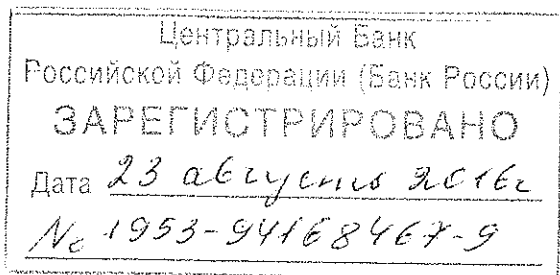 Центральный Банк
Российской Федерации (Банк России)
ЗАРЕГИСТРИРОВАНО
Дата 23 августа 2016г
№ 1953-94168467-9